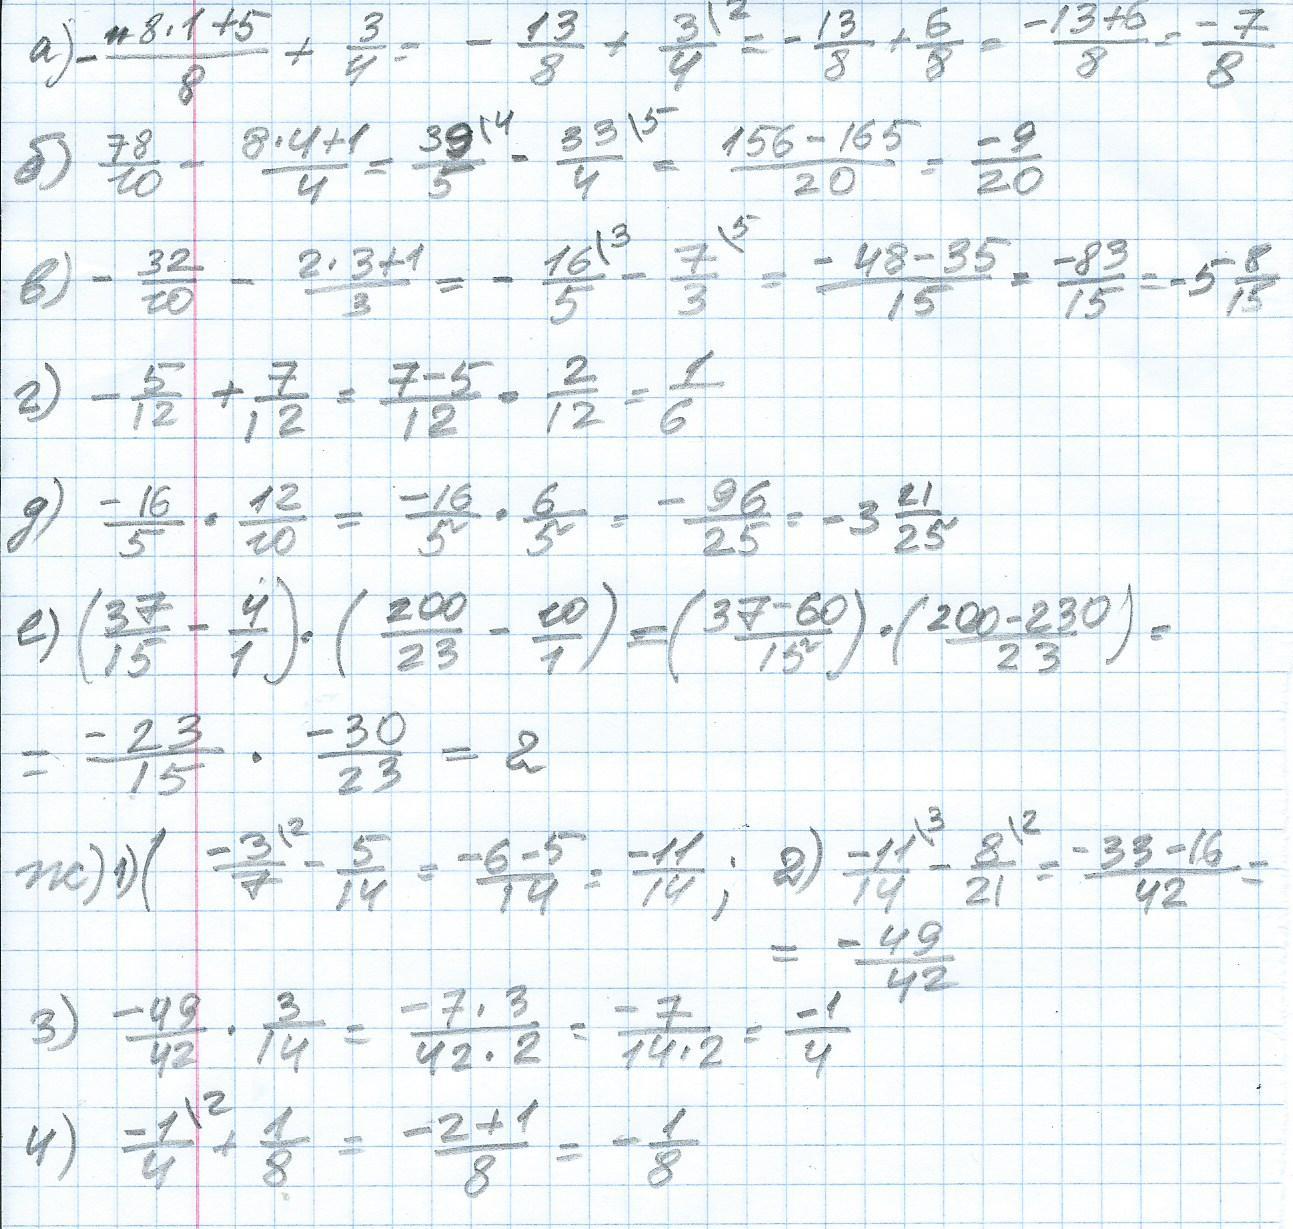 а) - -8·1+5/8 + 3/4 = - 13/8 + 3/4\2 = - 13/8 + 6/8 = -13+6/8 = -7/8
б) 78/10 - 8·4+1/4 = 39/5\4 - 33/4\5 = 156-165/20 = -9/20
в) - 32/10 - 2·3+1/3 = - 16/5\3 - 7/3\5 = -48-35/15 = -83/15 = -5 8/15
г) - 5/12 + 7/12 = 7-5/12 = 2/12 = 1/6
д) -16/5 · 12/10 = -16/5 · 6/5 = -96/25 = -3 21/25
е) (37/15 - 4/1) · (200/23 - 10/1) = (37-60/15) · (200-230/23) =
= -23/15 · -30/23 = 2
ж) 1) ( -3/7\2 - 5/14 = -6-5/14 = -11/14 ; 2) -11/14\3 - 8/21\2 = -33-16/42 =
= -49/42
3) -49/42 · 3/14 = -7·3/42·2 = -7/14·2 = -1/4
4) -1/4\2 + 1/8 = -2+1/8 = - 1/8